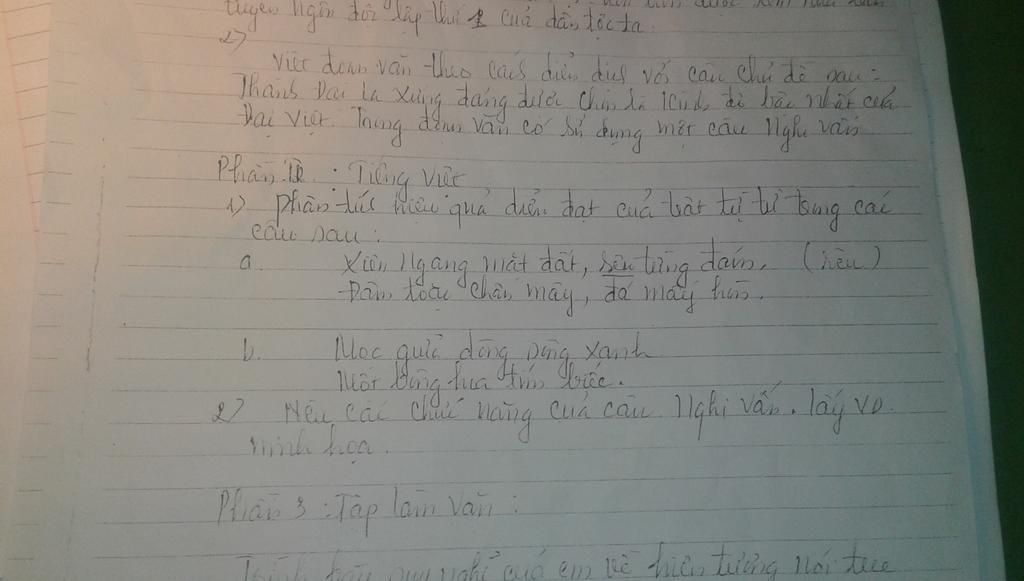 tuyên Ngôn độc lập thứ 2 của dân tộc ta.
2)
Viết đoạn văn theo cách diễn dịch với câu chủ đề sau:
Thành Đại La xứng đáng được chọn là kinh đô bậc nhất của
Đại Việt. Trong đoạn văn có sử dụng một câu Nghi vấn
Phần II : Tiếng Việt
1) phân tích hiệu quả diễn đạt của trật tự từ trong các
câu sau:
a. Xiên Ngang mặt đất, rêu từng đám, (rêu)
Đâm toạc chân mây, đá mấy hòn.
b. Mọc giữa dòng sông xanh
Một bông hoa tím biếc.
2) Nêu các chức năng của câu Nghi vấn. lấy VD
minh họa.
Phần 3 : Tập làm văn :
Trình bày suy nghĩ của em về hiện tượng nói tục